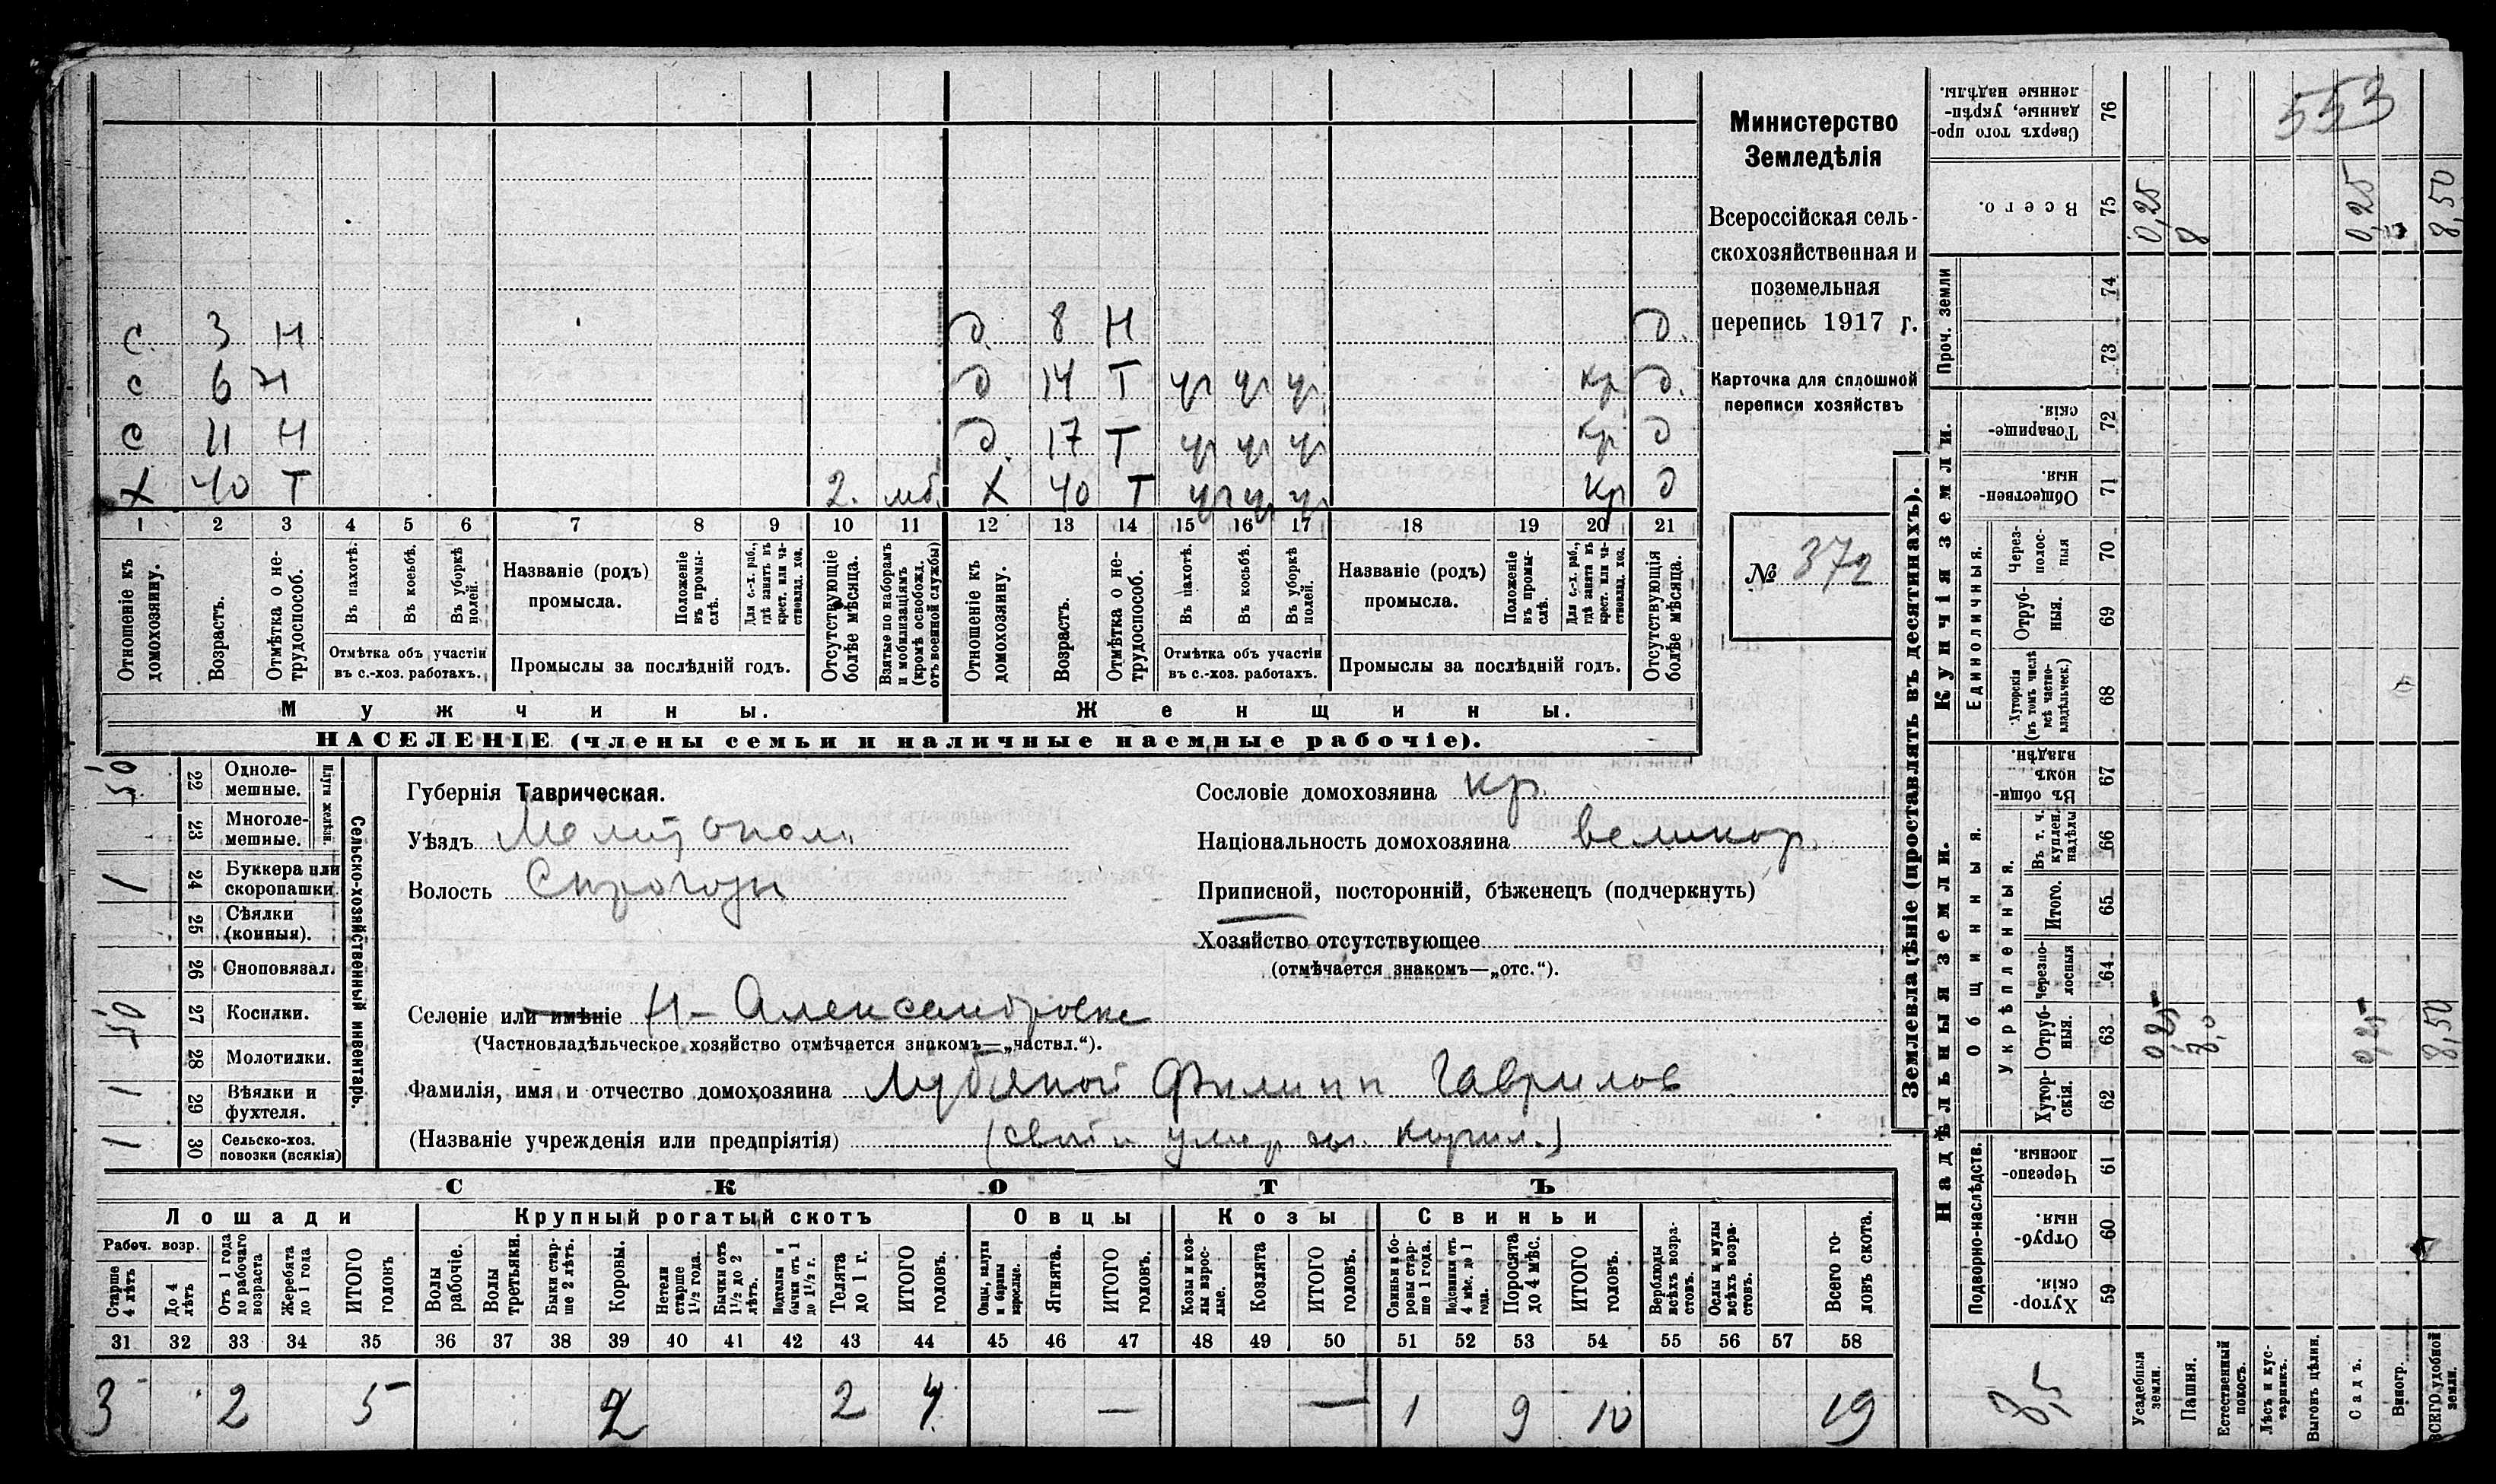 553
Министерство
Земледѣлія
Всероссійская сель-
скохозяйственная и
поземельная
перепись 1917 г.
Карточка для сплошной
переписи хозяйствъ
№ 372
с. 3 Н д. 8 Н д.
с 6 Н д 14 Т чр чр чр кр д.
с 11 Н д. 17 Т чр чр чр кр д
Х 40 Т 2. мб. Х 40 Т чр чр чр кр д
1 2 3 4 5 6 7 8 9 10 11 12 13 14 15 16 17 18 19 20 21
Отношеніе къ домохозяину.
Возрастъ.
Отмѣтка о не-трудоспособ.
Въ пахотѣ.
Въ косьбѣ.
Въ уборкѣ полей.
Отмѣтка объ участіи
въ с.-хоз. работахъ.
Названіе (родъ)
промысла.
Положеніе въ промы-слѣ.
Для с.-х. раб., гдѣ занятъ въ крест. или ча-стновлад. хоз.
Промыслы за послѣдній годъ.
Отсутствующіе болѣе мѣсяца.
Взятые по наборамъ и мобилизаціямъ (кромѣ освобожд. отъ военной службы)
Отношеніе къ домохозяину.
Возрастъ.
Отмѣтка о не-трудоспособ.
Въ пахотѣ.
Въ косьбѣ.
Въ уборкѣ полей.
Отмѣтка объ участіи
въ с.-хоз. работахъ.
Названіе (родъ)
промысла.
Положеніе въ промы-слѣ.
Для с.-х. раб., гдѣ занята въ крест. или ча-стновлад. хоз.
Промыслы за послѣдній годъ.
Отсутствующія болѣе мѣсяца.
Мужчины. Женщины.
НАСЕЛЕНІЕ (члены семьи и наличные наемные рабочіе).
Сельско-хозяйственный инвентарь.
Плуги желѣзн.
50 22 Одноле-мешные.
23 Многоле-мешные.
1 24 Буккера или скоропашки.
25 Сѣялки (конныя).
26 Сноповязал.
50 27 Косилки.
28 Молотилки.
1 29 Вѣялки и фухтеля.
1 30 Сельско-хоз. повозки (всякія)
Губернія Таврическая.
Уѣздъ Мелитопол.
Волость Сирогозы
Сословіе домохозяина кр.
Національность домохозяина великор.
Приписной, посторонній, бѣженецъ (подчеркнуть)
Хозяйство отсутствующее
(отмѣчается знакомъ—„отс.“).
Селеніе или имѣніе Н-Александровка
(Частновладѣльческое хозяйство отмѣчается знакомъ—„частвл.“).
Фамилія, имя и отчество домохозяина Лубяной Филипп Гаврилов
(Названіе учрежденія или предпріятія)
СКОТЪ
Лошади Крупный рогатый скотъ Овцы Козы Свиньи
Рабоч. возр.
Старше 4 лѣтъ
До 4 лѣтъ
Отъ 1 года до рабочаго возраста
Жеребята до 1 года
ИТОГО головъ
Волы рабочіе.
Волы третьяки.
Быки стар-ше 2 лѣтъ.
Коровы.
Нетели старше 1½ года.
Бычки отъ 1½ до 2 лѣтъ.
Подтелки и бычки отъ 1 до 1½ г.
Телята до 1 г.
ИТОГО головъ.
Овцы, валухи и бараны взрослые.
Ягнята.
ИТОГО головъ.
Козы и коз-лы взрос-лые.
Козлята
ИТОГО головъ.
Свиньи и бо-ровы стар-ше 1 года.
Подсвинки отъ 4 мѣс. до 1 года.
Поросята до 4 мѣс.
ИТОГО головъ.
Верблюды всѣхъ возра-стовъ.
Ослы и мулы всѣхъ возра-стовъ.
Всего го-ловъ скота.
31 32 33 34 35 36 37 38 39 40 41 42 43 44 45 46 47 48 49 50 51 52 53 54 55 56 57 58
3 2 5 2 2 4 — — 1 9 10 19
Землевладѣніе (проставлять въ десятинахъ).
Надѣльныя земли. Купчія земли.
Подворно-наслѣдств.
Общинныя.
Укрѣпленныя.
Единоличныя.
Проч. земли
59 Хутор-скія.
60 Отруб-ныя.
61 Черезпо-лосныя.
62 Хутор-скія.
63 Отруб-ныя. 0,25 8,0 0,25 8,50
64 Черезпо-лосныя
65 Итого.
66 Въ т. ч. куплен. надѣлы
67 Въ общи-номъ владѣн.
68 Хуторскія (въ томъ числѣ всѣ частно-владѣльческ.)
69 Отруб-ныя.
70 Через-полос-ныя
71 Обществен-ныя.
72 Товарище-скія.
73
74
75 Всего. 0,25 8 0,25 8,50
76 Сверхъ того про-данные, укрѣп-ленные надѣлы.
8,5
Усадебныя земли.
Пашня.
Естественный покосъ.
Лѣсъ и кус-тарникъ.
Выгонъ цѣлин.
Садъ.
Виногр.
ВСЕГО удобной земли.